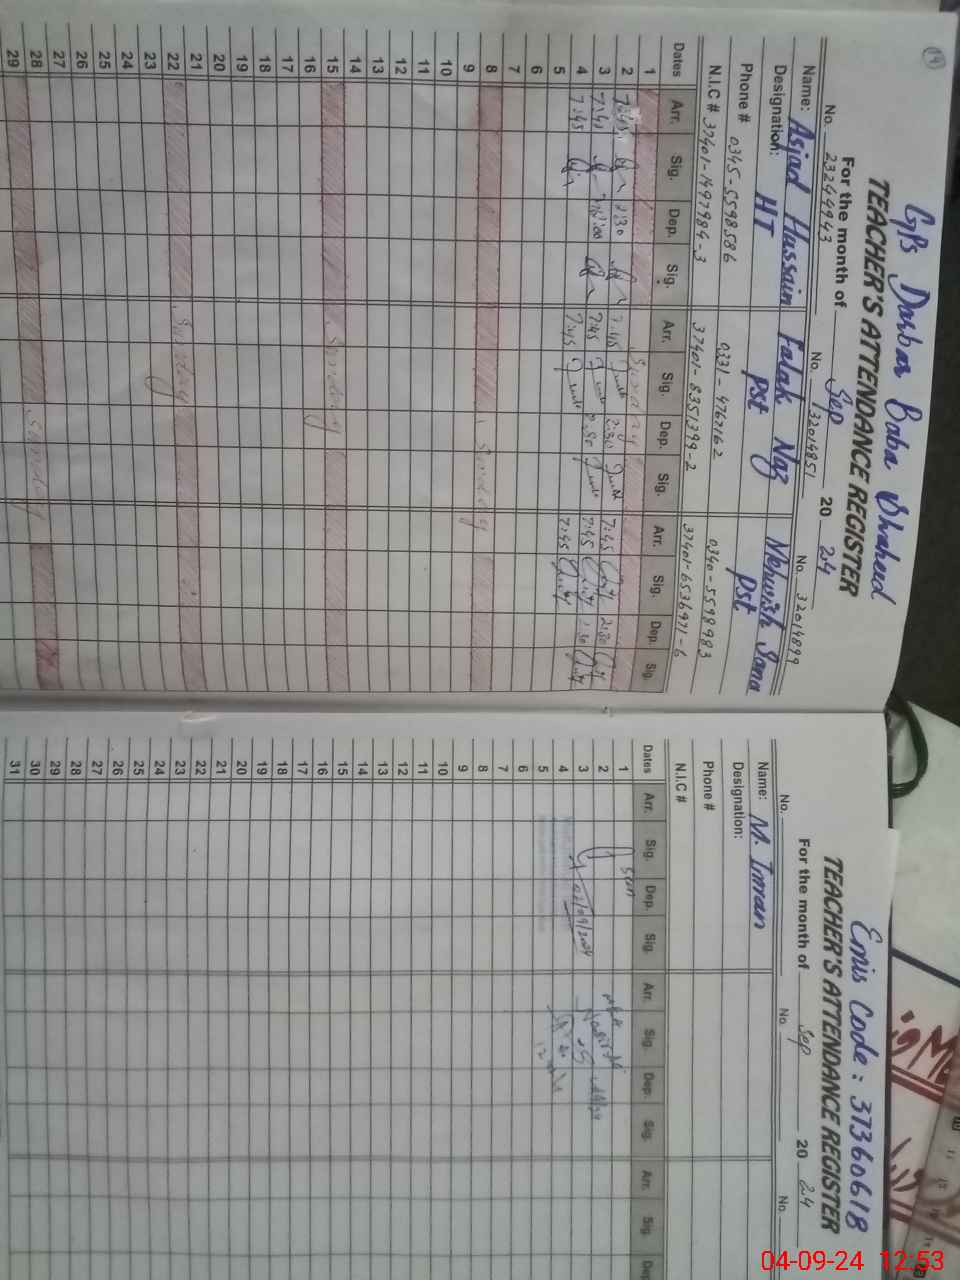 (19)
GPS Darbar Baba Shaheed
TEACHER'S ATTENDANCE REGISTER
For the month of Sep 20 24
No. 23244943 No. 32014851 No. 32014899
Name: Asjad Hussain Falak Naz Mehwish Sana
Designation: HT PST PST
Phone # 0345-5598586 0331-4762162 0340-5598983
N.I.C # 37401-1497984-3 37401-8351399-2 37401-6536971-6
Dates Arr. Sig. Dep. Sig. Arr. Sig. Dep. Sig. Arr. Sig. Dep. Sig.
1 Sunday
2 7:45 2:30 7:45 2:30 7:45 2:30
3 7:45 7:45 2:30 7:45 2:30
4 7:45 7:45 7:45
5
6
7
8 Sunday
9
10
11
12
13
14
15 Sunday
16
17
18
19
20
21
22 Sunday
23
24
25
26
27
28
29 Sunday
Emis Code: 37360618
TEACHER'S ATTENDANCE REGISTER
For the month of Sep 20 24
No. No. No.
Name: M. Imran
Designation:
Phone #
N.I.C #
Dates Arr. Sig. Dep. Sig. Arr. Sig. Dep. Sig. Arr. Sig. Dep.
1 Sun
2
3 02/09/2024
4
5
6
7
8
9
10
11
12
13
14
15
16
17
18
19
20
21
22
23
24
25
26
27
28
29
30
31
04-09-24 12:53